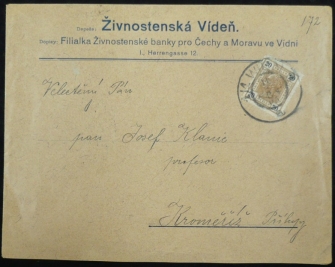 172
Dopisy: Živnostenská Vídeň.
Depeše: Filialka Živnostenské banky pro Čechy a Moravu ve Vídni
I., Herrengasse 12.
Velectěný Pán
pan Josef Klanic
profesor
Kroměříž